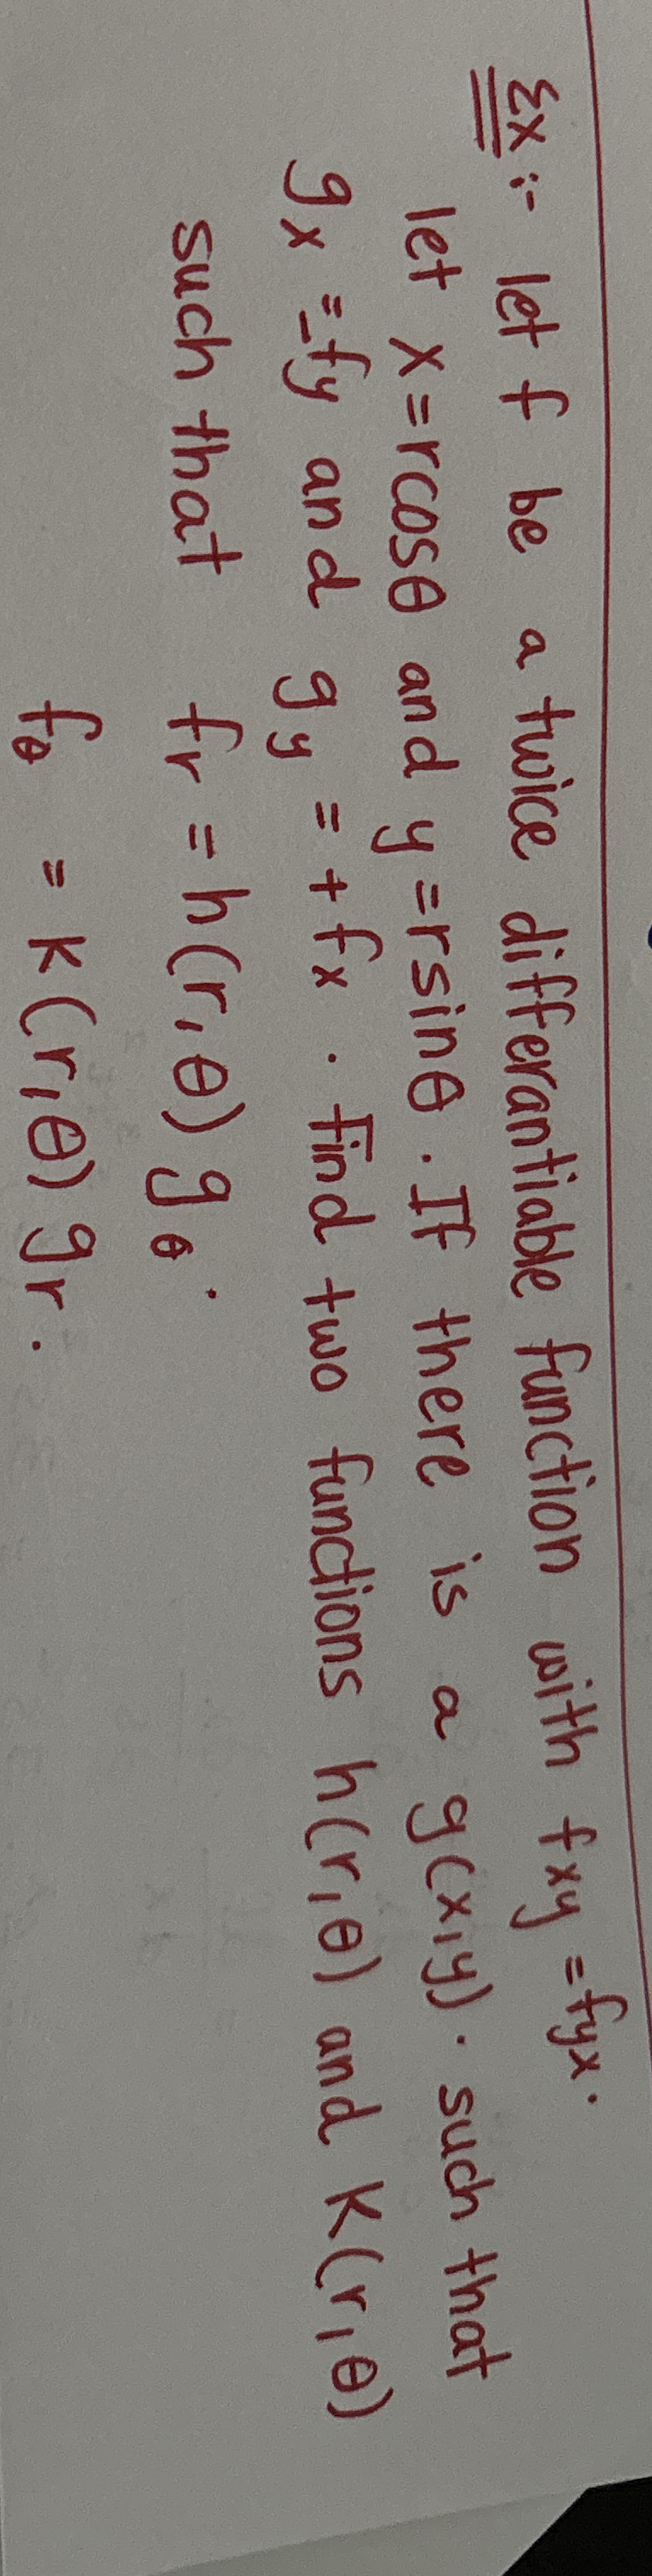 Ex :- let f be a twice differantiable function with fxy = fyx.
let x = rcosθ and y = rsinθ. If there is a g(x,y). such that
gx = -fy and gy = +fx. Find two functions h(r,θ) and K(r,θ)
such that fr = h(r,θ) gθ.
fθ = K(r,θ) gr.